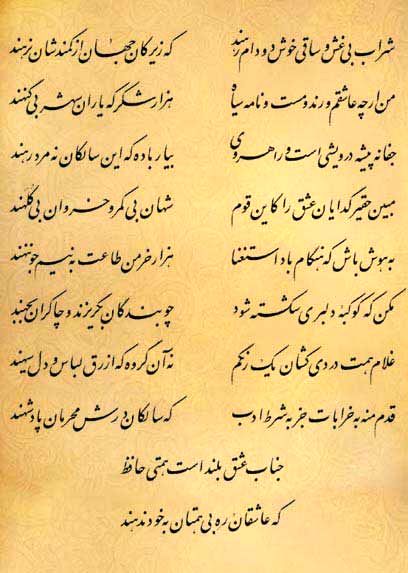 شراب بی غش و ساقی خوش دو دام رهند که زیرکان جهان از کمندشان نرهند
من ار چه عاشقم و رند و مست و نامه سیاه هزار شکر که یاران شهر بی گنهند
جفا نه پیشه درویشی است و راهروی بیار باده که این سالکان نه مرد رهند
مبین حقیر گدایان عشق را کاین قوم شهان بی کمر و خسروان بی کلهند
به هوش باش که هنگام باد استغنا هزار خرمن طاعت به نیم جو ننهند
مکن که کوکبهٔ دلبری شکسته شود چو بندگان بگریزند و چاکران بجهند
غلام همت دردی کشان یک رنگم نه آن گروه که ازرق لباس و دل سیهند
قدم منه به خرابات جز به شرط ادب که سالکان درش محرمان پادشهند
جناب عشق بلند است همتی حافظ
که عاشقان ره بی همتان به خود ندهند